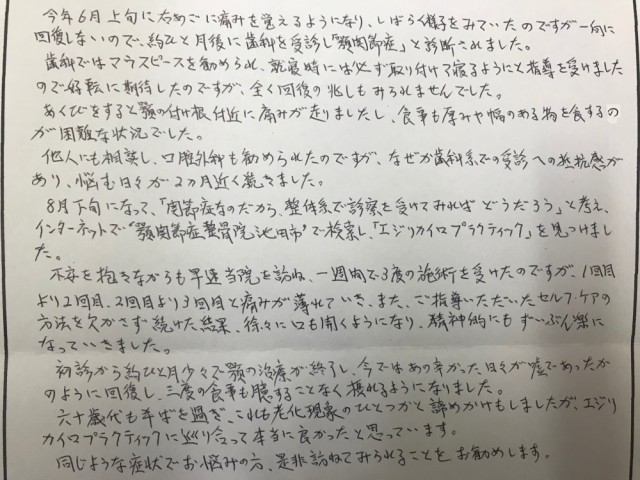 今年6月上旬に右あごに痛みを覚えるようになり、しばらく様子をみていたのですが一向に
回復しないので、約ひと月後に歯科を受診し「顎関節症」と診断されました。
歯科ではマウスピースを勧められ、就寝時には必ず取り付けて寝るようにと指導を受けました
ので好転に期待したのですが、全く回復の兆しもみられませんでした。
あくびをすると顎の付け根付近に痛みが走りましたし、食事も厚みや幅のある物を食するの
が困難な状況でした。
他人にも相談し、口腔外科も勧められたのですが、なぜか歯科系での受診への抵抗感が
あり、悩む日々が2ヵ月近く続きました。
8月下旬になって、「関節症なのだから、整体系で診察を受けてみればどうだろう」と考え、
インターネットで"顎関節症整骨院池田市"で検索し、「エジリカイロプラクティック」を見つけまし
た。
不安を抱きながらも早速当院を訪ね、一週間で3度の施術を受けたのですが、1回目
より2回目、2回目より3回目と痛みが薄れていき、また、ご指導いただいたセルフ・ケアの
方法を欠かさず続けた結果、徐々に口も開くようになり、精神的にもずいぶん楽に
なっていきました。
初診から約ひと月少々で顎の治療が終了し、今ではあの辛かった日々が嘘であったか
のように回復し、三度の食事も臆することなく摂れるようになりました。
六十歳代も半ばを過ぎ、これも老化現象のひとつかと諦めかけもしましたが、エジリ
カイロプラクティックに巡り合って本当に良かったと思っています。
同じような症状でお悩みの方、是非訪ねてみられることをお勧めします。